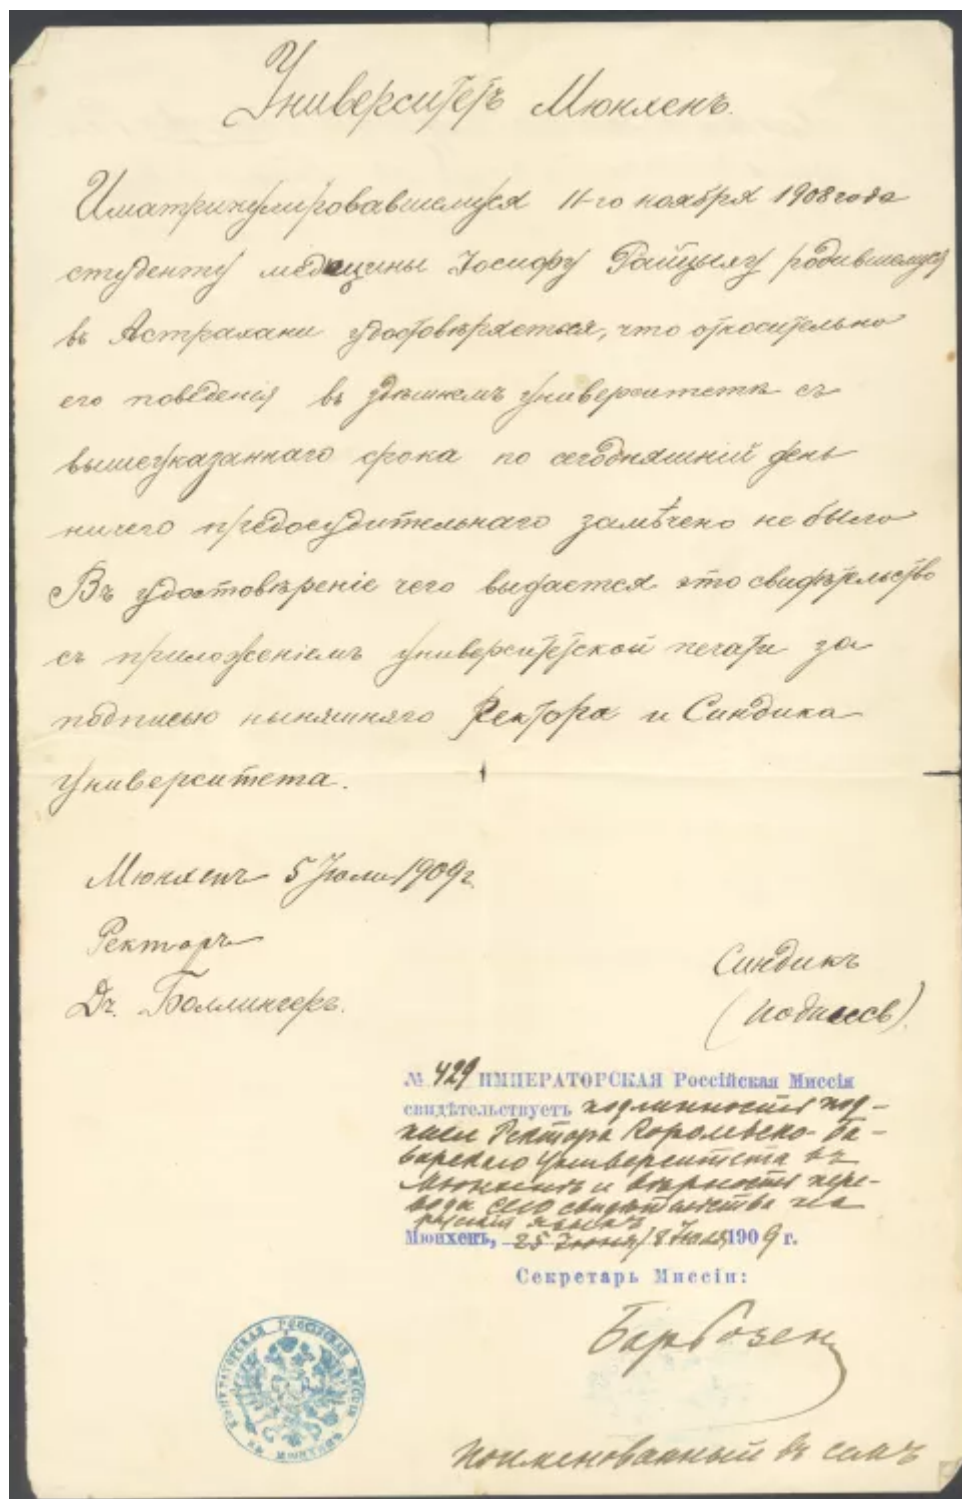 Университетъ Мюнхенъ.
Иматрикулировавшемуся 11-го ноября 1908 года
студенту медицины Іосифу Райцыху родившемуся
въ Астрахани удостовѣряется, что относительно
его поведенія въ здѣшнемъ университетѣ съ
вышеуказаннаго срока по сегодняшній день
ничего предосудительнаго замѣчено не было
Въ удостовѣреніе чего выдается это свидѣтельство
съ приложеніемъ университетской печати за
подписью нынѣшняго Ректора и Синдика
университета.
Мюнхенъ 5 Іюли 1909 г.
Ректоръ
Др. Боллингеръ.
Синдикъ
(подпись).
№ 429 ИМПЕРАТОРСКАЯ Россійская Миссія
свидѣтельствуетъ подлинность под-
писи Ректора Королевско-Ба-
варскаго Университета въ
Мюнхенѣ и вѣрность пере-
вода сего свидѣтельства на
русскій языкъ
Мюнхенъ, 25 Іюня/8 Іюля 1909 г.
Секретарь Миссіи:
ИМПЕРАТОРСКАЯ РОССІЙСКАЯ МИССІЯ ВЪ МЮНХЕНѢ
поименованный въ семъ